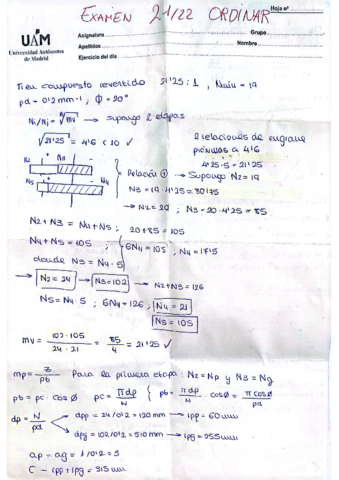 EXAMEN 21/22 ORDINAR
Hoja nº
UAM
Universidad Autónoma
de Madrid
Asignatura
Grupo
Apellidos
Nombre
Ejercicio del día
Tren compuesto revertido 21'25 : 1 , Nmin = 19
pd = 0'12 mm-1 ; Φ = 20°
Ni/Nj = ⁿ√mv → supongo 2 etapas
√21'25 = 4'6 < 10 ✓
2 relaciones de engrane
próximas a 4'6
4'25·5 = 21'25
N2 N3
N5 N4
Relación ① → Supongo N2 = 19
N3 = 19·4'25 = 80'75
→ N2 = 20 ; N3 = 20·4'25 = 85
N2 + N3 = N4 + N5 ; 20 + 85 = 105
N4 + N5 = 105 ; 6N4 = 105 ; N4 = 17'5
donde N5 = N4·5
→ N2 = 24 → N3 = 102 → N2 + N3 = 126
N5 = N4·5 ; 6N4 = 126 ; N4 = 21
N5 = 105
mv = 102·105 / 24·21 = 85/4 = 21'25 ✓
mp = z/pb Para la primera etapa : N2 = Np y N3 = Ng
pb = pc·cos Ø pc = πdp/N { pb = πdp/N · cos Ø = π cos Ø/pd
dp = N/pd dpp = 24/0'12 = 120 mm → rpp = 60 mm
dpg = 102/0'12 = 510 mm → rpg = 255 mm
ap = ag = 1/0'12 = 5
C = rpp + rpg = 315 mm